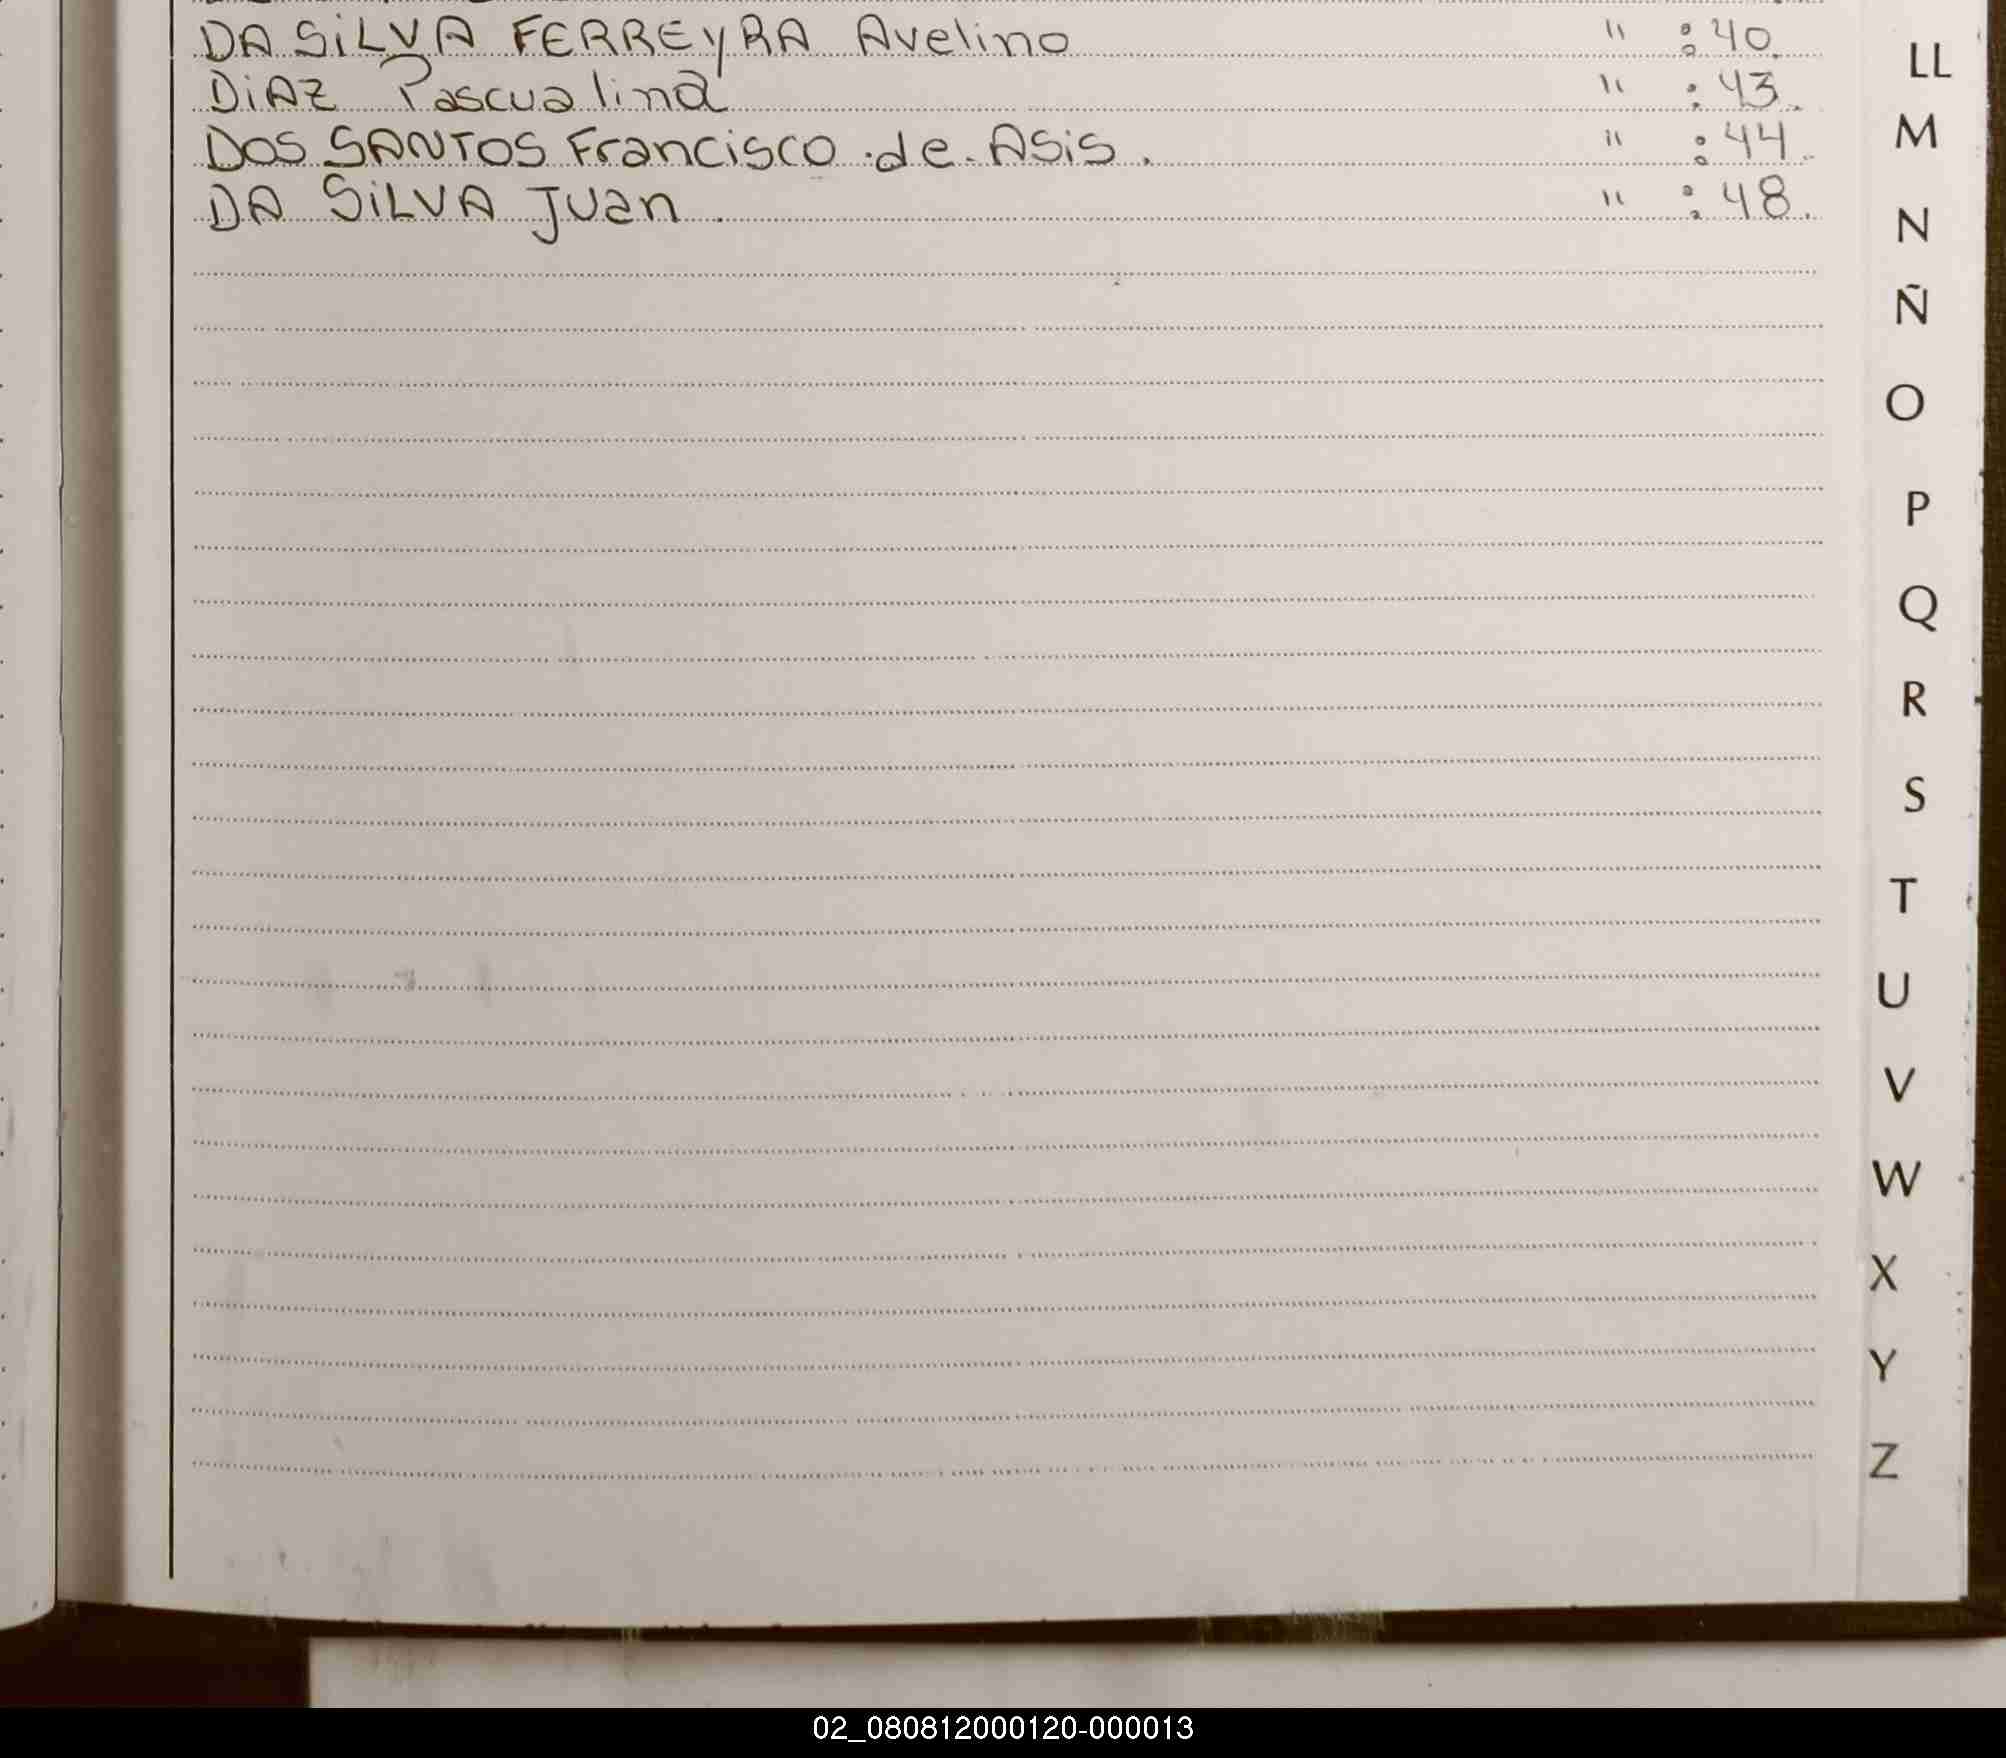 DA SiLVA FERREyRA Avelino " : 40.
DiAZ Pascualina " : 43.
DOS SANTOS Francisco de Asis. " : 44.
DA SiLVA Juan. " : 48.
LL
M
N
Ñ
O
P
Q
R
S
T
U
V
W
X
Y
Z
02_080812000120-000013